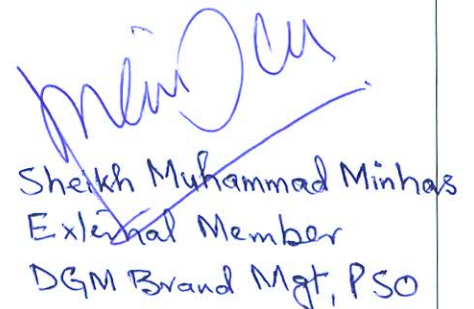 Sheikh Muhammad Minhas
External Member
DGM Brand Mgt, PSO